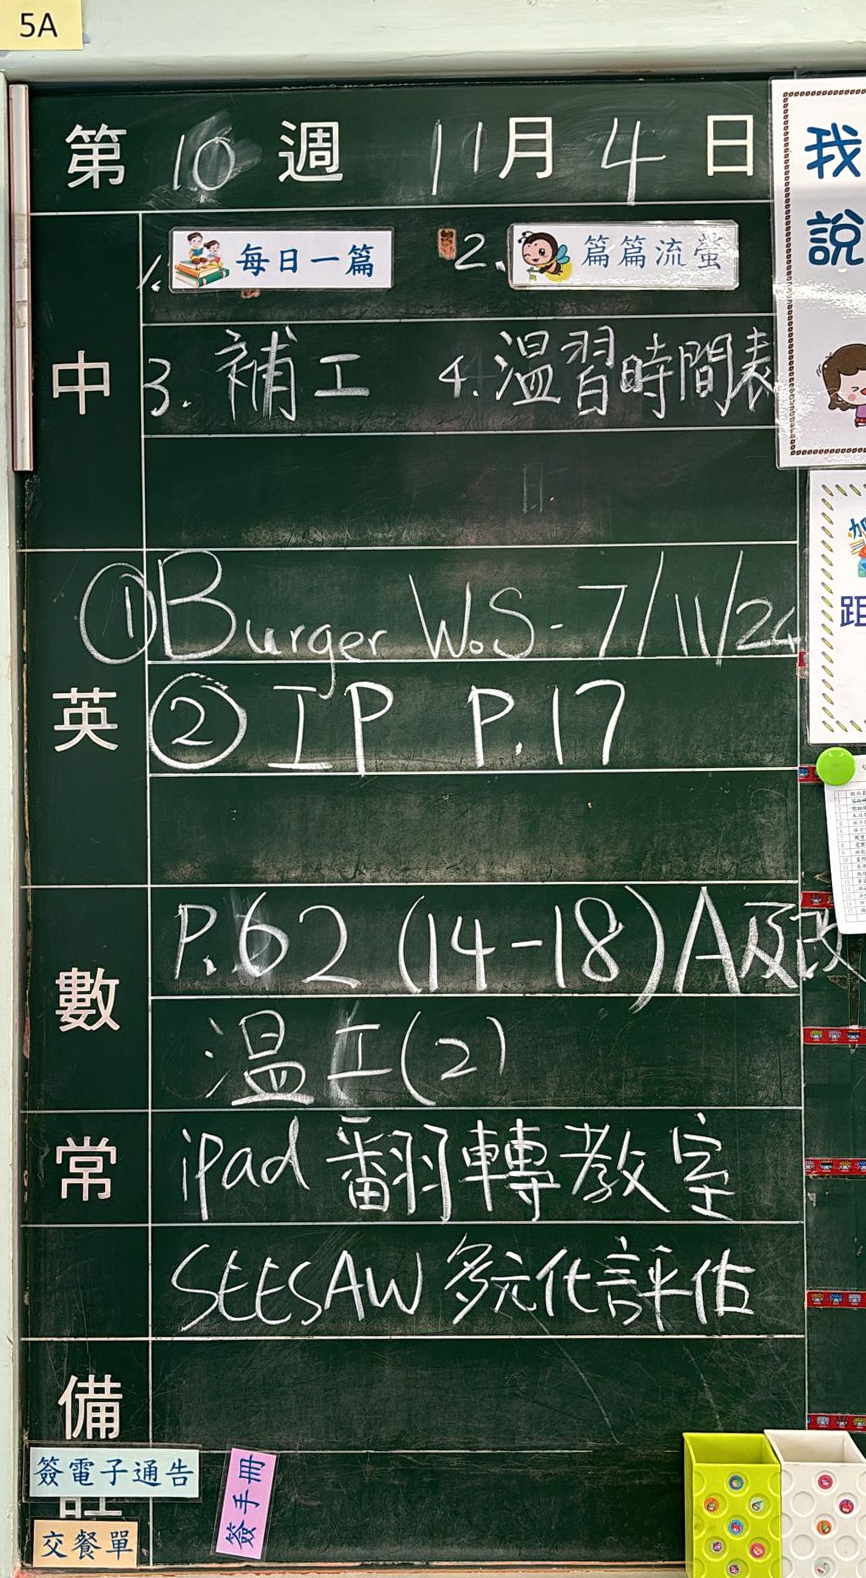 5A
第 10 週 11月 4 日
中
1. 每日一篇 2. 篇篇流螢
3. 補工 4. 溫習時間表
英
① Burger W.S - 7/11/24
② IP P.17
數
P.62 (14-18) A及改
溫工(2)
常
iPad 翻轉教室
SEESAW 多元化評估
備註
簽電子通告
簽手冊
交餐單
我
說
加
距